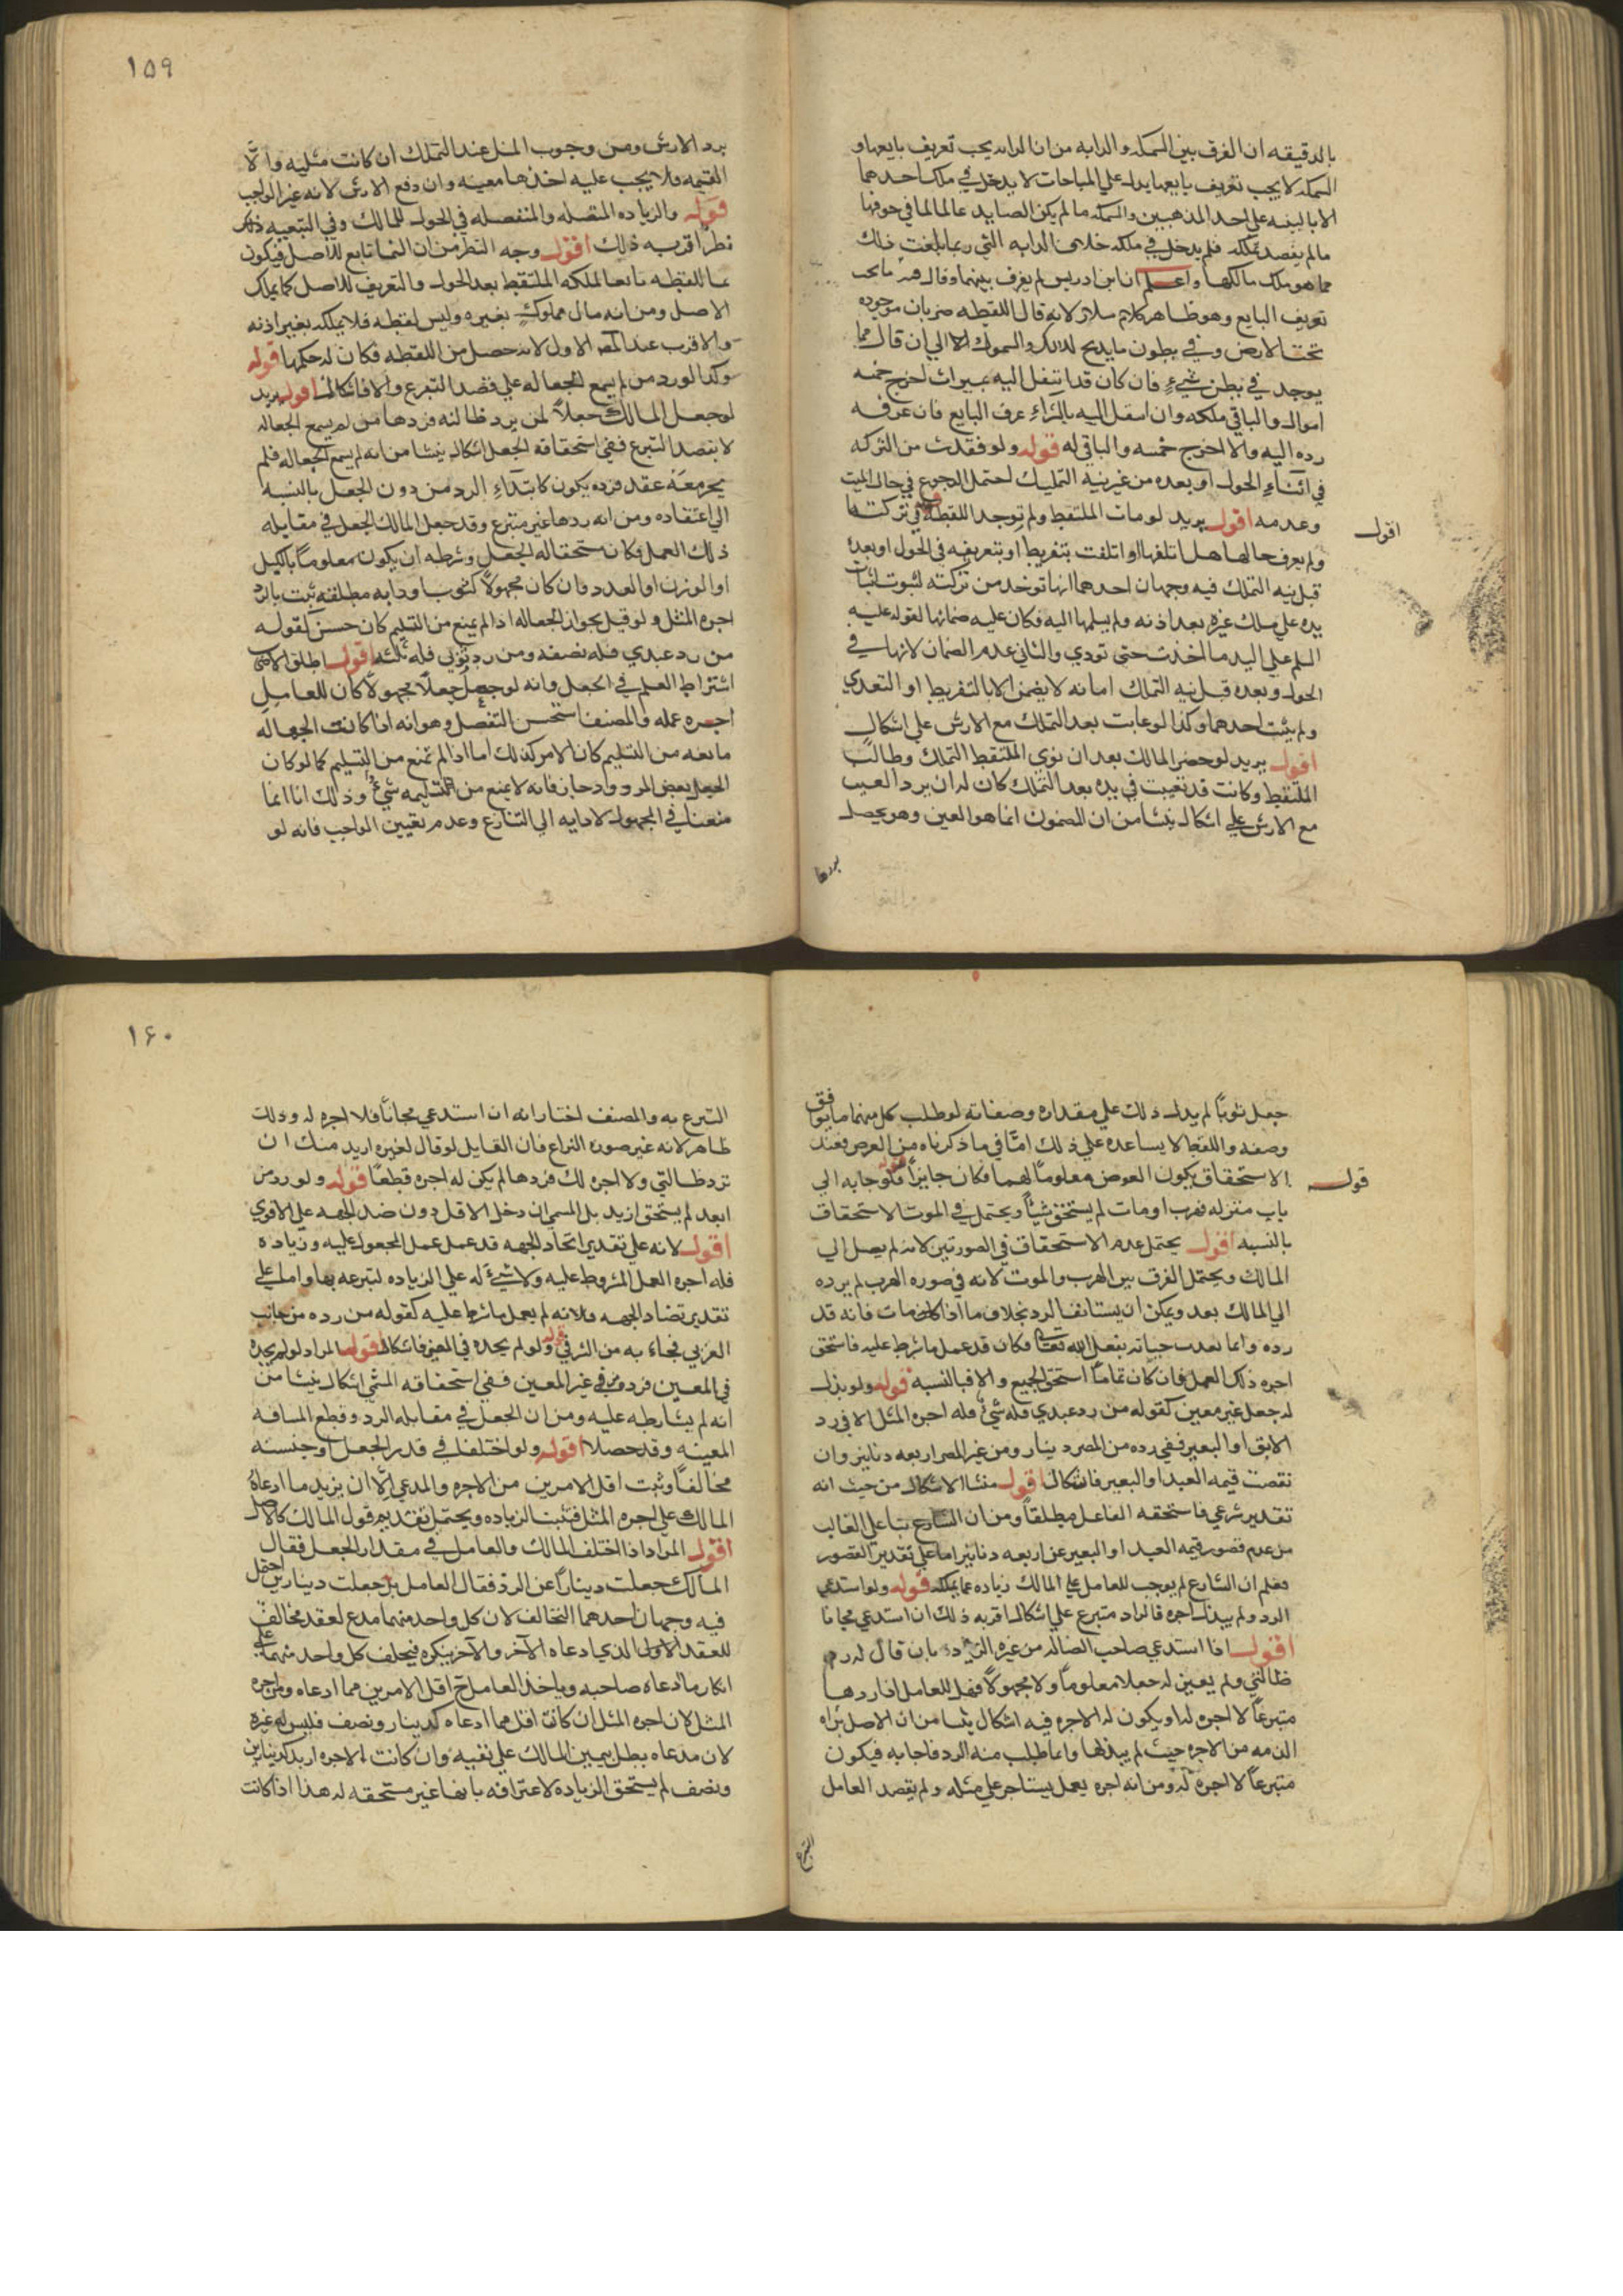 بالدقيقه ان الفرق بين السمكه والدابه من ان الدابه يجب تعريف بايعها و
السمكه لا يجب تعريف بايعها يدل علي المباحات لا يدخل في ملك احدهما
الا بالنيه علي احد المذهبين والسمكه ما لم يكن الصايد عالما لما في جوفها
ما لم يقصد تملكه فلم يدخل في ملكه خلاف الدابه التي ربما بلغت ذلك
مما هو ملك مالكها واعلم ان ابن ادريس لم يفرق بينهما وقال يجب
تعريف البايع وهو ظاهر كلام سلار لانه قال اللقطه ضربان موجوده
تحت الارض وفي بطون ما يذبح للاكل والسموك الا الي ان قال فما
يوجد في بطن شيء فان كان قد انتقل اليه بميراث اخرج خمسه
امواله والباقي ملكه وان انتقل اليه بالشراء عرف البايع فان عرفه
رده اليه والا اخرج خمسه والباقي له قوله ولو فقدت من التركه
في اثناء الحول او بعده من غير نيه التمليك احتمل الرجوع في مال الميت
وعدمه اقول يريد لو مات الملتقط ولم توجد اللقطه في تركته
اقول
ولم يعرف حالها هل اتلفها او تلفت بتفريط او بتعريفه في الحول او بعده
قبل نيه التملك فيه وجهان احدهما انها توخذ من تركته لثبوت
يده علي ملك غيره بعد اذنه ولم يسلمها اليه فكان عليه ضمانها لقوله عليه
السلم علي اليد ما اخذت حتي تودي والثاني عدم الضمان لانها في
الحول وبعده قبل نيه التملك امانه لا يضمن الا بالتفريط او التعدي
ولم يثبت احدهما وكذا لو عابت بعد التملك مع الارش علي اشكال
اقول يريد لو حضر المالك بعد ان نوي الملتقط التملك وطالب
الملتقط وكانت قد تعيبت في يده بعد التملك كان له ان يرد العيب
مع الارش علي اشكال ينشا من ان المضمون انما هو العين وهو يحصل
بردها
١٥٩
برد الارش ومن وجوب المثل عند التملك ان كانت مثليه والا
القيمه فلا يجب عليه اخذها معيبه وان دفع الارش لانه غير الواجب
قوله والزياده المتصله والمنفصله في الحول للمالك وفي التبعيه ذلك
نظر اقربه ذلك اقول وجه النظر من ان النما تابع للاصل فيكون
نما اللقطه تابعا لملكه الملتقط بعد الحول والتعريف للاصل كما يملك
الاصل ومن انه مال مملوك بغيره وليس لقطه فلا يملكه بغير اذنه
والاقرب عند المص الاول لانه حصل من اللقطه فكان له حكمها قوله
وكذا لو رد من لم يسمع الجعاله علي قصد التبرع والا فاشكال اقول يريد
لو جعل المالك جعلا لمن يرد ظالته فردها من لم يسمع الجعاله
لا بقصد التبرع ففي استحقاقه الجعل اشكال ينشا من انه لم يسمع الجعاله فلم
يجر معه عقد فرده يكون كابتداء الرد من دون الجعل بالنسبه
الي اعتقاده ومن انه ردها غير متبرع وقد جعل المالك الجعل في مقابله
ذلك العمل فكان مستحقا له الجعل وشرطه ان يكون معلوما بالكيل
او الوزن او العدد وان كان مجهولا كثوب او دابه مطلقه ثبت بالرد
اجره المثل ولو قيل بجواز الجعاله اذا لم يمنع من التسليم كان حسن كقوله
من رد عبدي فله نصفه ومن رد ثوبي فله ثلثه اقول اطلق الاصحاب
اشتراط العلم في الجعل وانه لو جعل جعلا مجهولا كان للعامل
اجره عمله والمصنف استحسن التفصيل وهو انه اذا كانت الجهاله
مانعه من التسليم كان الامر كذلك اما اذا لم تمنع من التسليم كما لو كان
الجعل بعض المردود جاز فانه لا يمنع من تسليمه شيء وذلك انا انما
منعنا في المجهول لادايه الي التنازع وعدم تعيين الواجب فانه لو
جعل ثوبا لم يدل ذلك علي مقداره وصفاته لو طلب كل منهما ما يوافق
وصفه واللفظ لا يساعده علي ذلك اما في ما ذكرناه من العرض فعند
الاستحقاق يكون العوض معلوما لهما فكان جايزا قوله ولو جا به الي
قوله
باب منزله فهرب او مات لم يستحق شيئا ويحتمل في الموت الاستحقاق
بالنسبه اقول يحتمل عدم الاستحقاق في الصورتين لانه لم يصل الي
المالك ويحتمل الفرق بين الهرب والموت لانه في صوره الهرب لم يرده
الي المالك بعد ويمكن ان يستانف الرد بخلاف ما اذا مات فانه قد
رده وانما تعدت حياته بفعل الله تعالي فكان قد عمل ما شرط عليه فاستحق
اجره ذلك العمل فان كان تماما استحق الجميع والا فبالنسبه قوله ولو بذل
له جعل غير معين كقوله من رد عبدي فله شيء فله اجره المثل الا في رد
الابق او البعير ففي رده من المصر دينار ومن غير المصر اربعه دنانير وان
نقصت قيمه العبد او البعير فاشكال اقول منشا الاشكال من حيث انه
تقدير شرعي فاستحقه الفاعل مطلقا ومن ان الشارع بنا علي الغالب
من عدم قصور قيمه العبد او البعير عن اربعه دنانير اما علي تقدير القصور
فعلم ان الشارع لم يوجب للعامل علي المالك زياده عما يملكه قوله ولو استدعي
الرد ولم يبذل اجره فالراد متبرع علي اشكال اقربه ذلك ان استدعي مجانا
اقول اذا استدعي صاحب الضاله من غيره الرد بان قال له رد
ظالتي ولم يعين له جعلا معلوما ولا مجهولا فهل للعامل اذا ردها
متبرعا لا اجره له او يكون له الاجره فيه اشكال ينشا من ان الاصل براه
الذمه من الاجره حيث لم يبذلها وانما طلب منه الرد فاجابه فيكون
متبرعا لا اجره له ومن انه اجره يعمل يستاجر علي مثله ولم يقصد العامل
التبرع
١٦٠
التبرع به والمصنف اختار انه ان استدعي مجانا فلا اجره له وذلك
ظاهر لانه غير صوره النزاع فان القايل لو قال لغيره اريد منك ان
ترد ظالتي ولا اجره لك فردها لم يكن له اجره قطعا قوله ولو رد من
ابعد لم يستحق ازيد بل المسمي ان دخل الاقل دون ضد الجهه علي الاقوي
اقول لانه علي تقدير اتحاد الجهه قد عمل عمل المجعول عليه وزياده
فله اجره العمل المشروط عليه ولا شيء له علي الزياده لتبرعه بها واما علي
تقدير تضاد الجهه فلانه لم يعمل ما شرط عليه كقوله من رده من جانب
الغربي فجاء به من الشرقي قوله ولو لم يجده في المعين فاشكال اقول المراد لو لم يجده
في المعين فرده من في غير المعين ففي استحقاقه المسمي اشكال ينشا من
انه لم يشارطه عليه ومن ان الجعل في مقابله الرد وقطع المسافه
المعينه وقد حصلا اقول ولو اختلفا في قدر الجعل او جنسه
تحالفا وثبت اقل الامرين من الاجره والمدعي الا ان يزيد ما ادعاه
المالك علي اجره المثل فتثبت الزياده ويحتمل تقديم قول المالك كالاصل
اقول المراد اذا اختلف المالك والعامل في مقدار الجعل فقال
المالك جعلت دينارا عن الرد فقال العامل بل جعلت دينارين احتمل
فيه وجهان احدهما التحالف لان كل واحد منهما مدع لعقد مخالف
للعقد الاول الذي ادعاه الاخر والاخر ينكره فيحلف كل واحد منهما علي
انكار ما ادعاه صاحبه وياخذ العامل ح اقل الامرين مما ادعاه ومن اجره
المثل لان اجره المثل ان كانت اقل مما ادعاه كدينار ونصف فليس له غيره
لان مدعاه بطل بيمين المالك علي نفيه وان كانت الاجره ازيد كدينارين
ونصف لم يستحق الزيادة لاعترافه بانها غير مستحقه له هذا اذا كانت